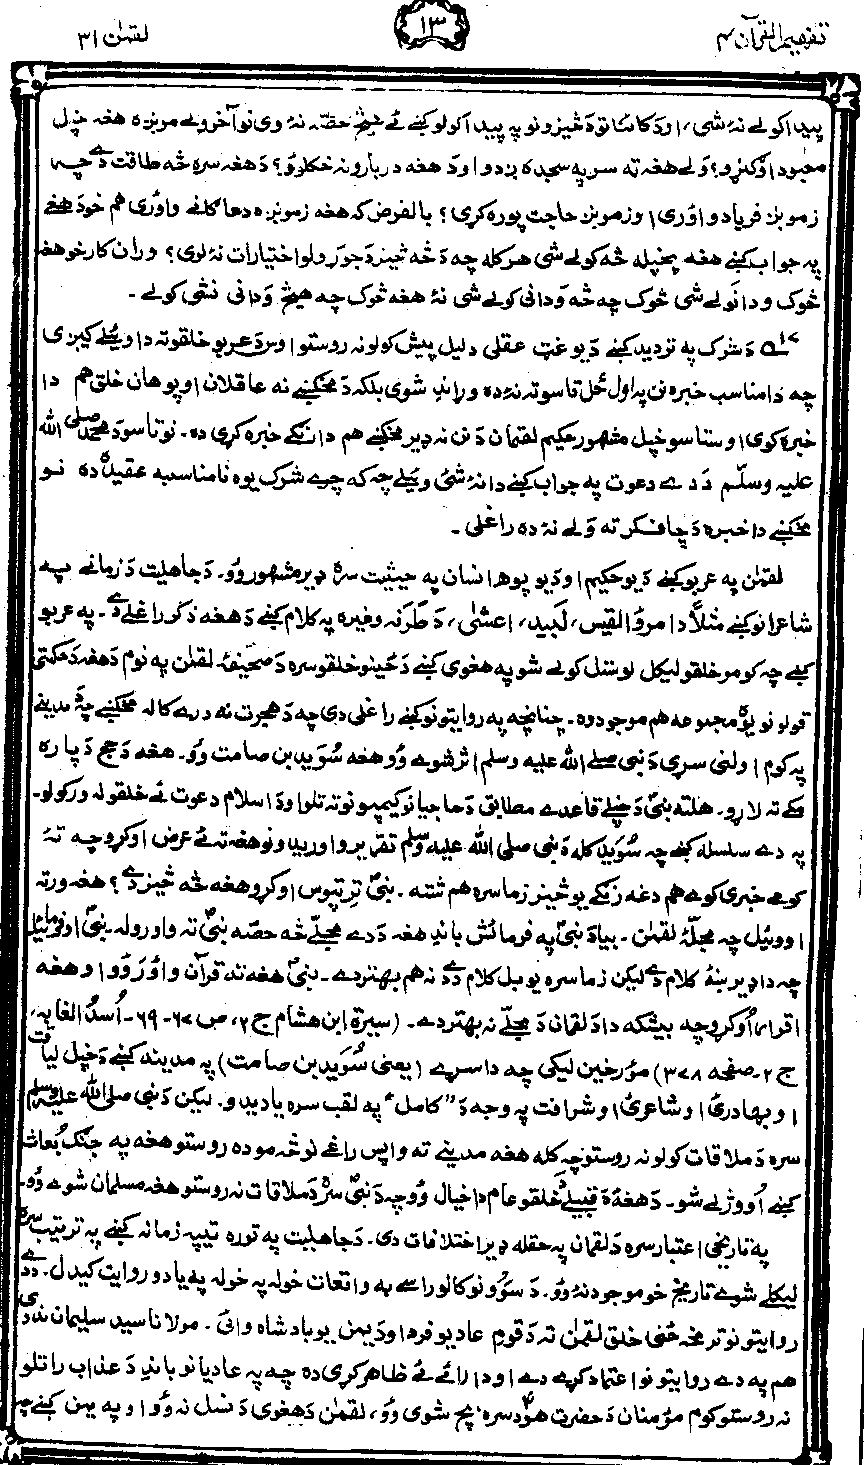 تفهیم القرآن ۴
۱۳
لقمٰن ۳۱
پیدا کولے نۀ شی، او د کائناتو د څیزونو په پیدا کولو کښے ئے هیڅ حصّه نۀ وی نو آخر ولے مونږه هغه خپل
معبود اوګنړو؟ ولے هغه ته سر په سجده پریدو او د هغه دربارونه ښکلوؤ؟ د هغه سره څه طاقت دے چه
زمونږ فریاد واؤری او زمونږ حاجت پوره کړی؟ بالفرض که هغه زمونږه دعاګانے واؤری هم خو د هغے
په جواب کښے هغه پخپله څه کولے شی هر کله چه د څه څیز د جوړولو اختیارات نۀ لری؟ وران کار خو هغه
څوک ودانولے شی څوک چه څه ودانی کولے شی نۀ هغه څوک چه هیڅ ودانی نشی کولے۔
د شرک په تردید کښے د یو غټ عقلی دلیل پیش کولو نه روستو اوس د عربو خلقو ته دا وئیلے کیږی
چه دا مناسب خبره نن په اول ځل تاسو ته نۀ ده وړاندے شوی بلکه د مخکښے نه عاقلان او پوهان خلق هم دا
خبره کوی او ستاسو خپل مشهور حکیم لقمان د نن نه ډیر مخکښے هم دا رنګے خبره کړی ده۔ نو تاسو د محمد صلی الله
علیه وسلّم د دے دعوت په جواب کښے دا نۀ شئ وئیلے چه که چرے شرک یوه نامناسبه عقیده ده نو
مخکښے دا خبره د چا فکر ته ولے نۀ ده راغلی۔
لقمٰن په عربو کښے د یو حکیم او د یو پوه انسان په حیثیت سره ډیر مشهور وؤ۔ د جاهلیت د زمانے په
شاعرانو کښے مثلاً د امرؤالقیس، لَبید، اعشٰی، د طَرَفه وغیره په کلام کښے د هغه ذکر راغلے دے۔ په عربو
کښے چه کومو خلقو لیکل لوستل کولے شو په هغوی کښے د ځینو خلقو سره د صحیفۀ لقمٰن په نوم د هغه د حکمتی
قولونو یوه مجموعه هم موجود وه۔ چنانچه په روایتونو کښے راغلی دی چه د هجرت نه درے کاله مخکښے چه د مدینے
په کوم اولنی سړی د نبی صلے الله علیه وسلم اثر شوے وؤ هغه سُوَید بن صامت وؤ۔ هغه د حج د پاره
مکے ته لاړو۔ هلته نبیؐ د خپلے قاعدے مطابق د حاجیانو کیمپونو ته تلو او د اسلام دعوت ئے خلقو له ورکولو۔
په دے سلسله کښے چه سُوَید کله د نبی صلی الله علیه وسلم تقریر واوریدو نو هغه ته ئے عرض اوکړو چه تۀ
کومے خبرے کوے هم دغه رنګے یو څیز زما سره هم شته۔ نبیؐ تِر تپوس اوکړو هغه څه څیز دے؟ هغه ورته
اووئیل چه مجلّۀ لقمٰن۔ بیا د نبیؐ په فرمائش باندے هغه د دے مجلّے څه حصّه نبیؐ ته واوروله۔ نبیؐ اوفرمائیل
چه دا ډیر ښۀ کلام دے لیکن زما سره یو بل کلام د دے نه هم بهتر دے۔ نبیؐ هغه ته قرآن واؤرَوو او هغه
اقرار اوکړو چه بیشکه دا د لقمان د مجلّے نه بهتر دے۔ (سیرة ابن هشام ج۲، ص ۶۷-۶۹- اُسدُ الغابه،
ج ۲- صفحه ۳۷۸) مؤرخین لیکی چه دا سړے (یعنی سُوَید بن صامت) په مدینه کښے د خپل لیاقت
او بهادرئ او شاعرئ او شرافت په وجه د "کامل" په لقب سره یادیدو۔ لیکن د نبی صلی الله علیه وسلم
سره د ملاقات کولو نه روستو چه کله هغه مدینے ته واپس راغے نو څه موده روستو هغه په جنګ بُعاث
کښے اووژلے شو۔ د هغۀ د قبیلے د خلقو عام دا خیال وؤ چه د نبیؐ سره د ملاقات نه روستو هغه مسلمان شوے وؤ۔
په تاریخی اعتبار سره د لقمان په حقله ډیر اختلافات دی۔ د جاهلیت په توره تیپه زمانه کښے په ترتیب سره
لیکلے شوے تاریخ خو موجود نۀ وؤ۔ د سوونو کالو راسے به واقعات خوله په خوله په یادو روایت کیدل۔ د دے
روایتونو تر مخه ځنی خلق لقمٰن ته د قومِ عاد یو فرد او د یمن یو بادشاه وائی۔ مولانا سید سلیمان ندوی
هم په دے روایتونو اعتماد کړے دے او دا رائے ئے ظاهر کړی ده چه په عادیانو باندے د عذاب راتلو
نه روستو کوم مؤمنان د حضرت هودؑ سره بچ شوی وؤ، لقمٰن د هغوی د نسل نه وؤ او په یمن کښے چه